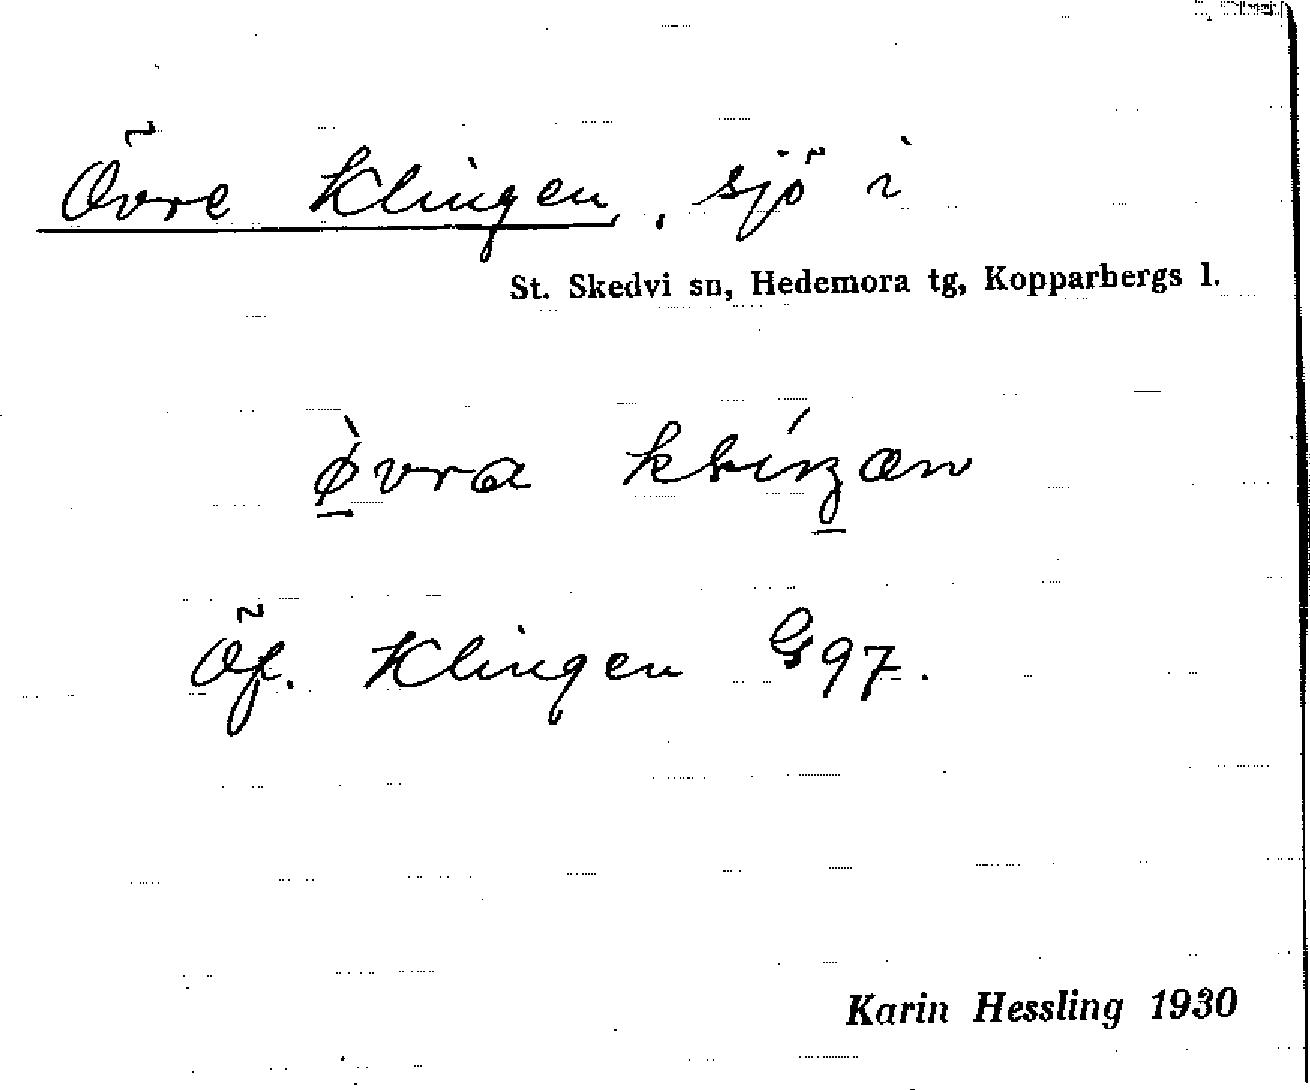 Övre Klingen, sjö i
St. Skedvi sn, Hedemora tg, Kopparbergs l.
Öf. Klingen G97.
Karin Hessling 1930